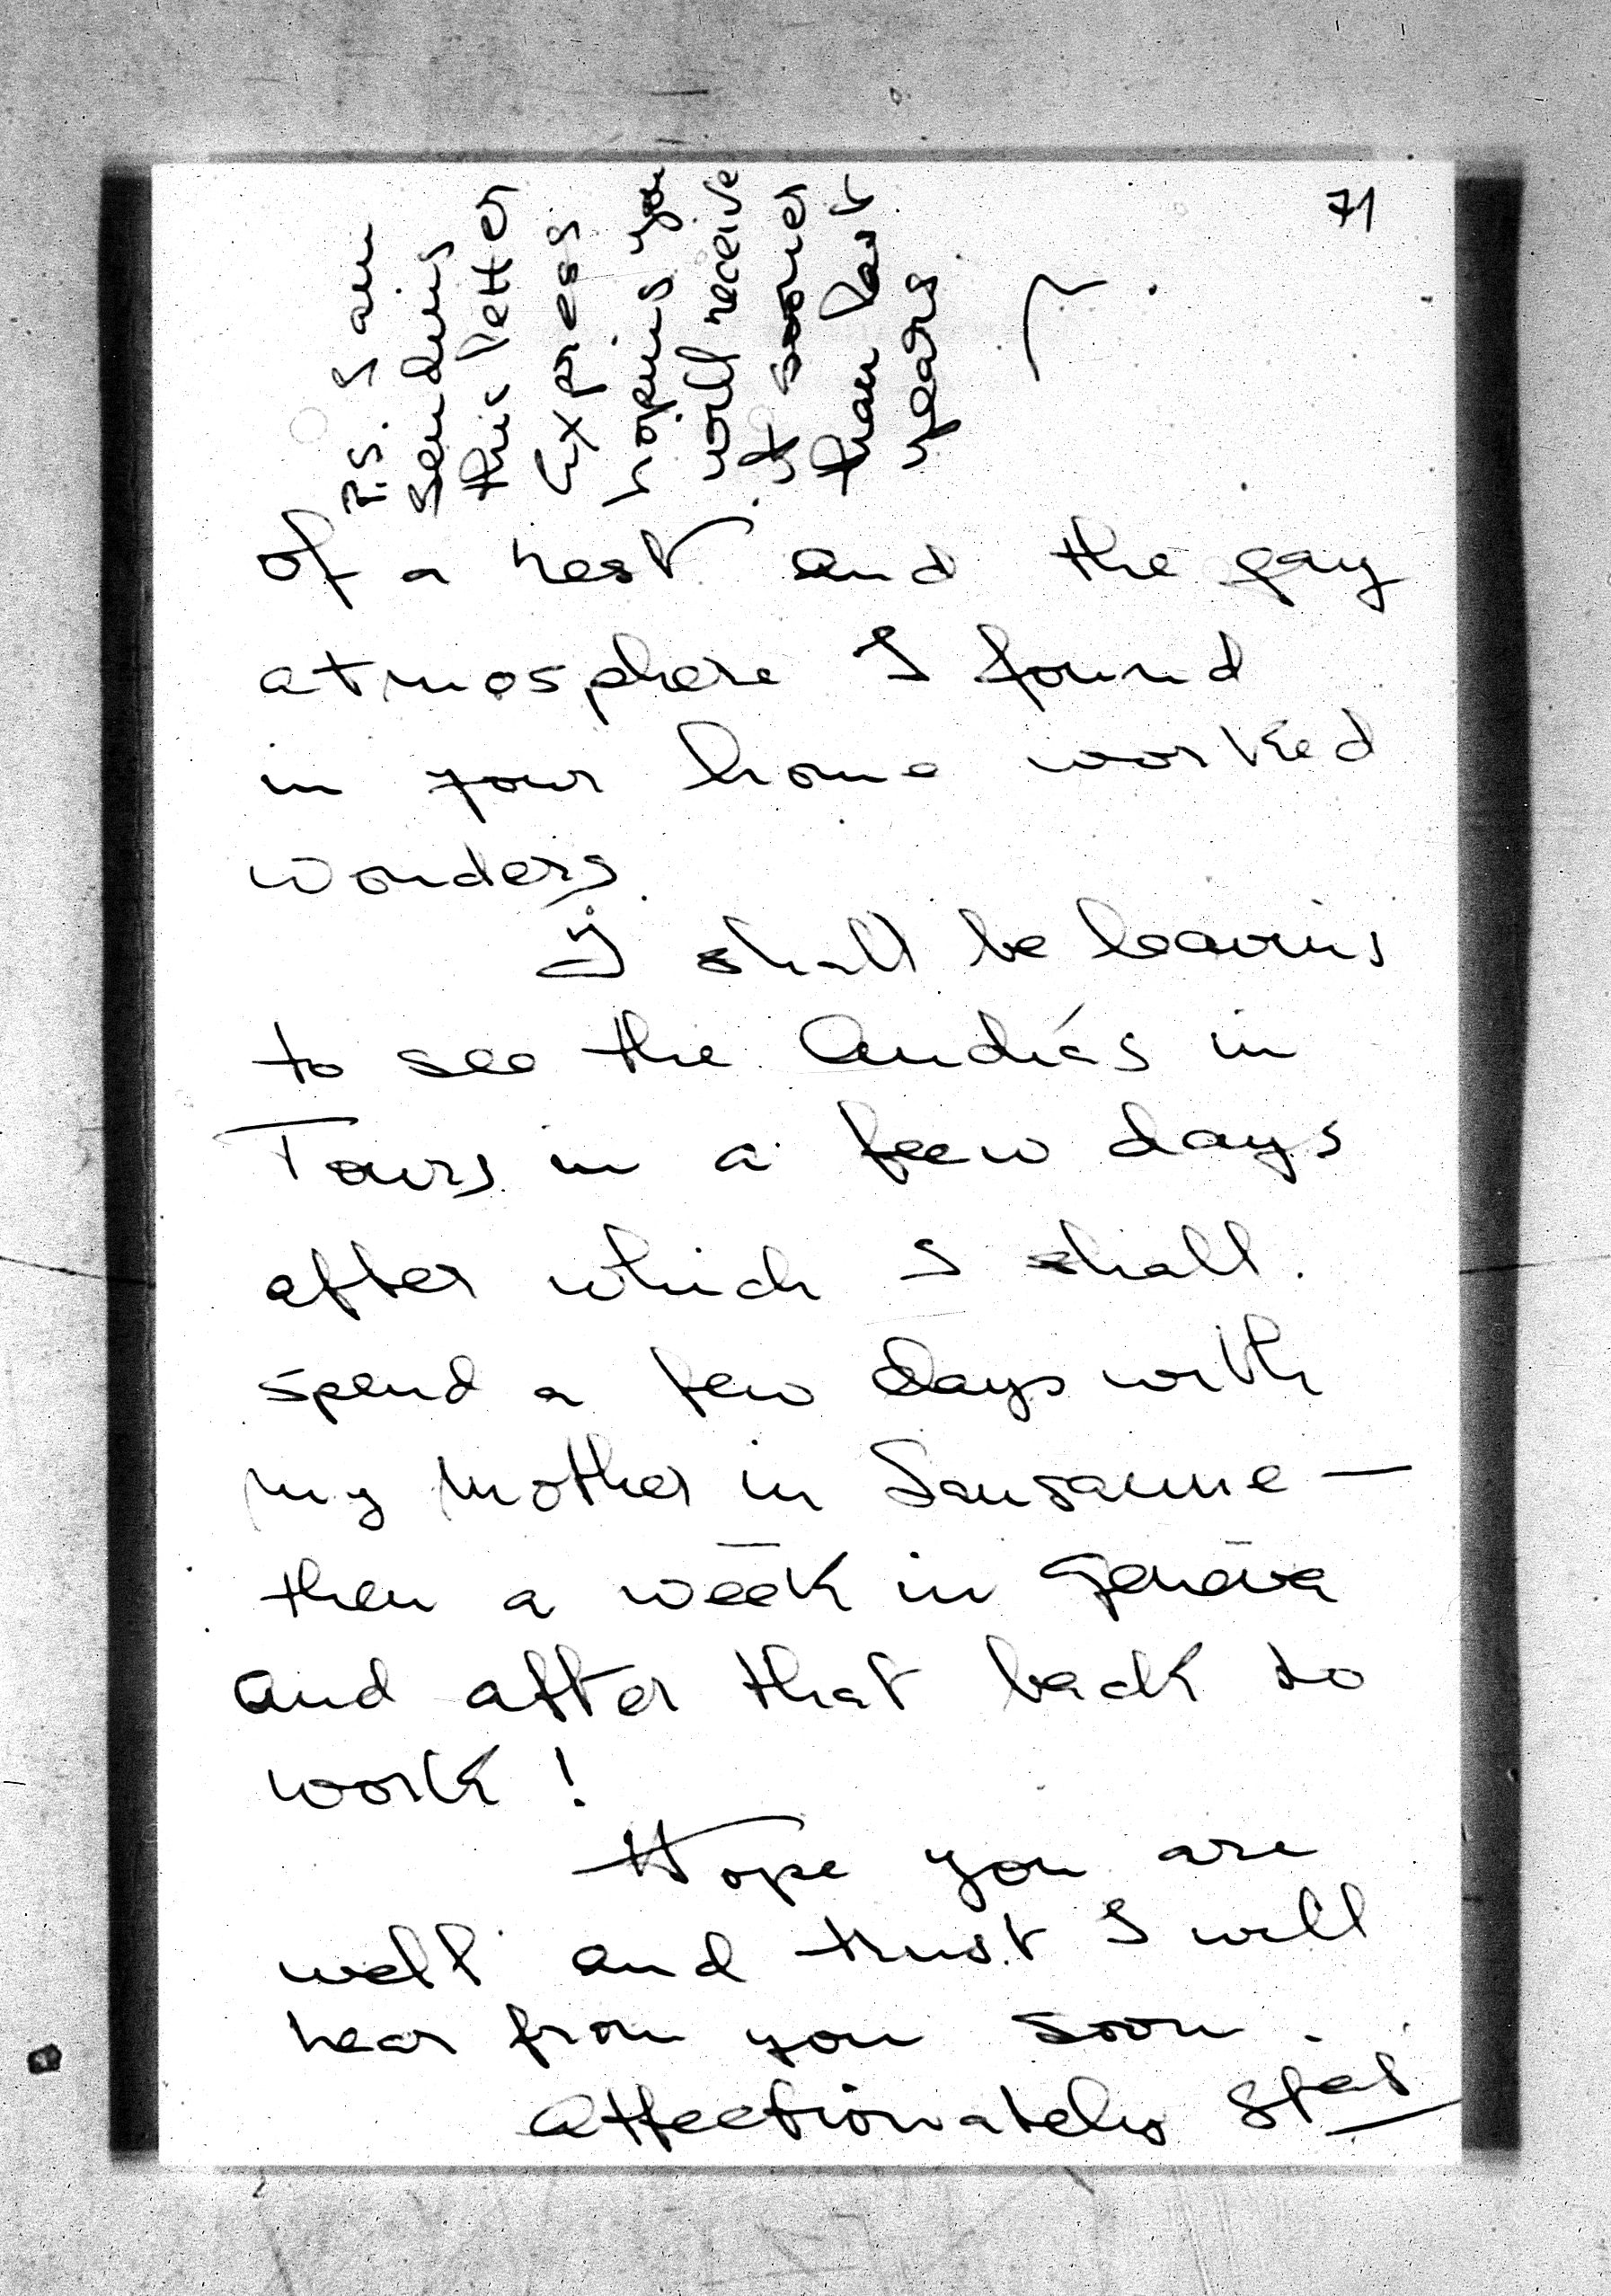 71
P.S. I am
sending
this letter
Express
hoping you
will receive
it sooner
than last
years
of a rest and the gay
atmosphere I found
in your home worked
wonders.
I shall be leaving
to see the Andrés in
Tours in a feew days
after which I shall
spend a few days with
my mother in Lausanne —
then a week in Geneva
and after that back to
work!
Hope you are
well and trust I will
hear from you soon.
Affectionately